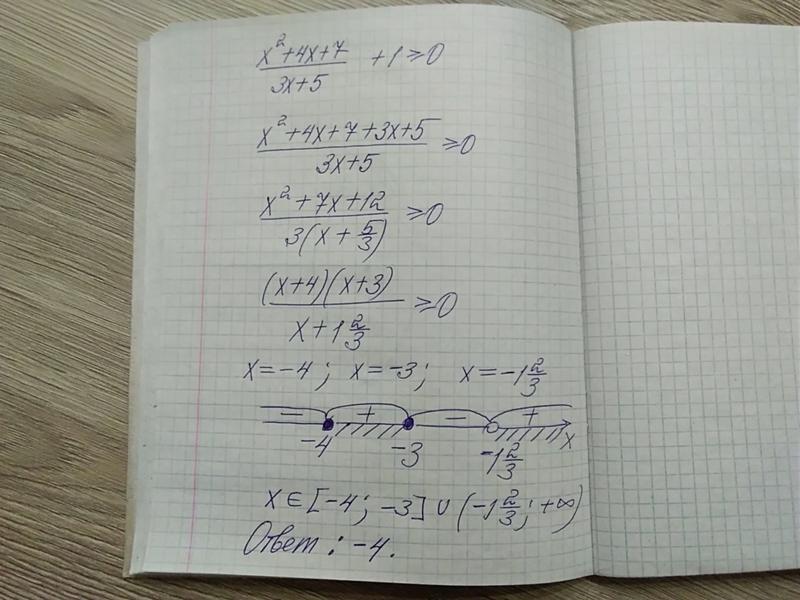 (x²+4x+7)/(3x+5) +1≥0
(x²+4x+7+3x+5)/(3x+5) ≥0
(x²+7x+12)/(3(x+5/3)) ≥0
((x+4)(x+3))/(x+1 2/3) ≥0
x=-4; x=-3; x=-1 2/3
- + - +
-4 -3 -1 2/3 x
x∈[-4; -3]∪(-1 2/3; +∞)
Ответ: -4.